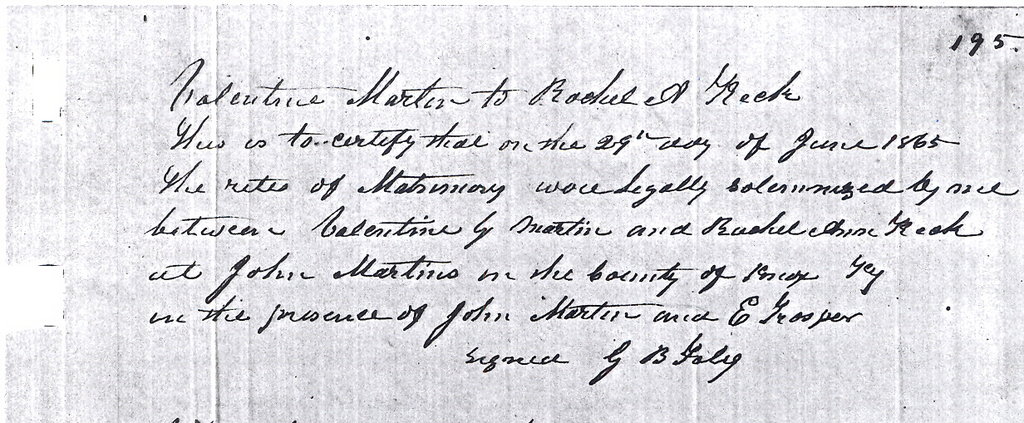 195.
Valentine Martin to Rachel A Keck
This is to certify that on the 29th day of June 1865
The rites of Matrimony were legally solemnized by me
between Valentine G Martin and Rachel Ann Keck
at John Martins in the County of Knox Ky
in the presence of John Martin and E Trosper
signed G B Foley